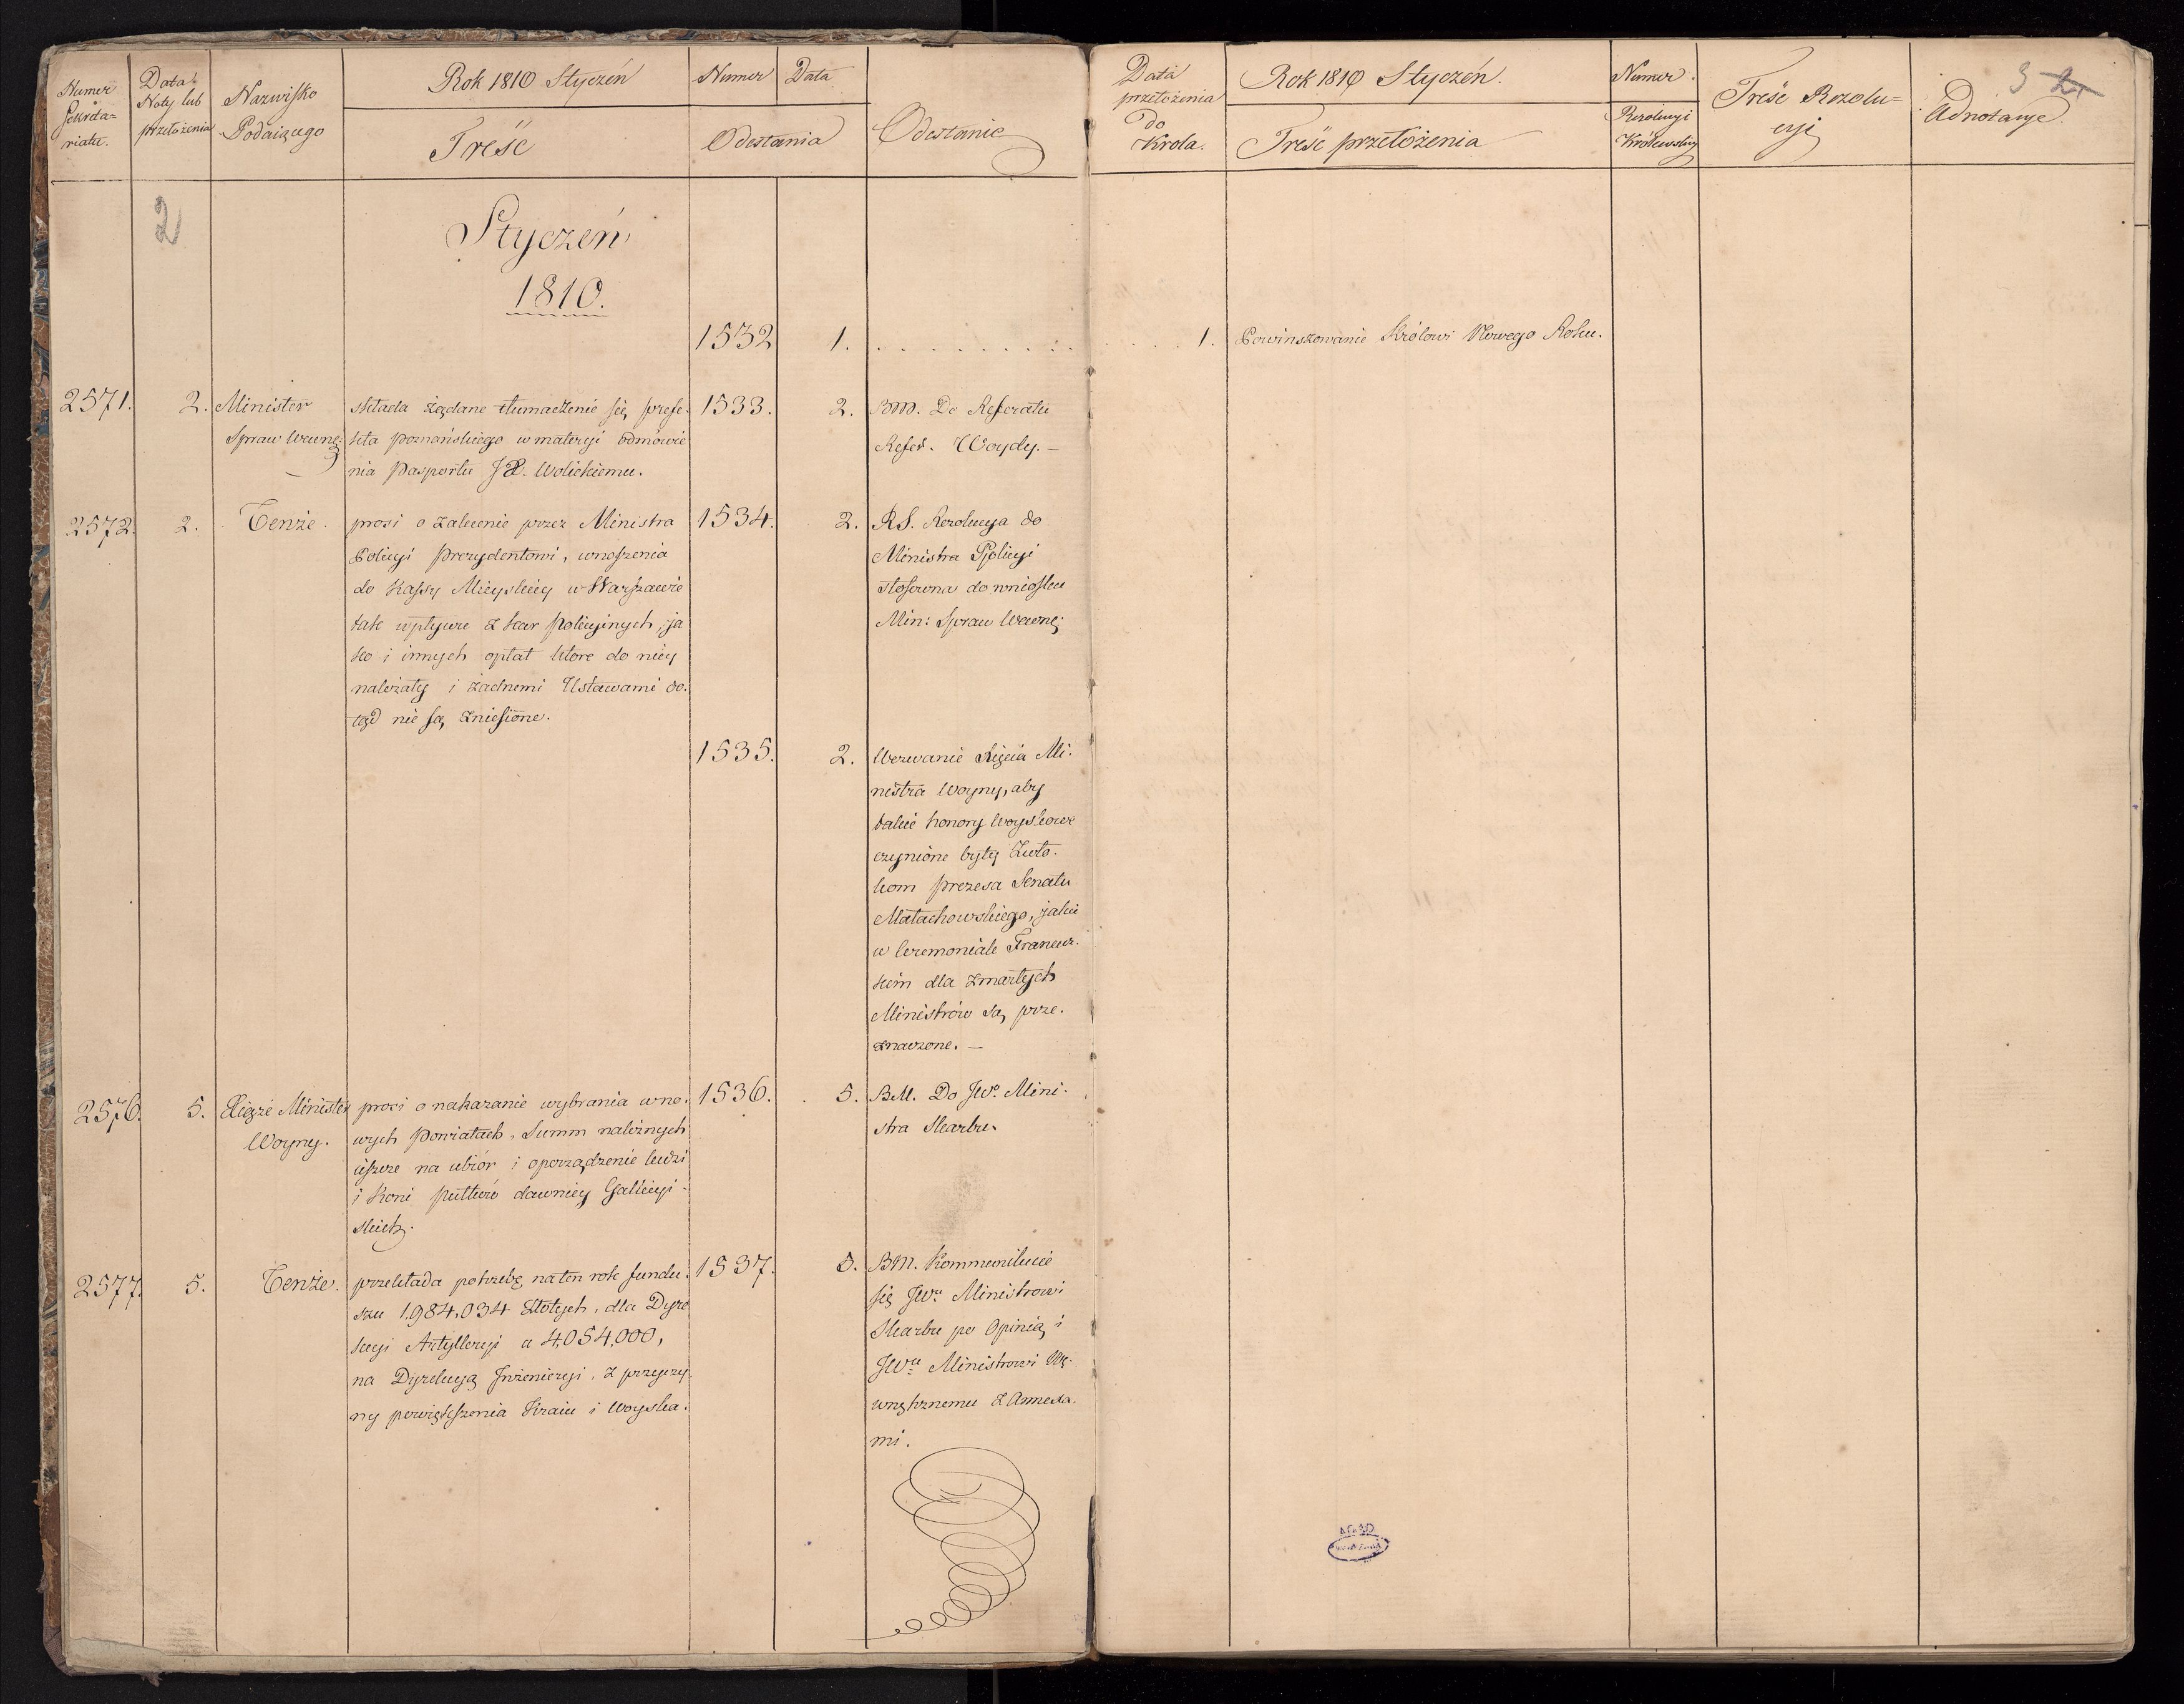 Numer Sekreta=riatu.
Data Noty lub przełożenia
Nazwisko Podaiącego
Rok 1810 Styczeń
Treść
Numer
Data
Odesłania
Odesłanie
2
Styczeń
1810.
1532 1. . . . . . . . . .
2571. 2. Minister
Spraw Wewnę:
składa żądane tłumaczenie się prefe-
kta poznańskiego w materyi odmówie
nia Pasportu JX. Wolickiemu.
1533. 2. BM. Do Referatu
Refer. Woydy. —
2572. 2. Tenże.
prosi o zalecenie przez Ministra
Policyi Prezydentowi, wnoszenia
do Kassy Mieyskiey w Warszawie
tak wpływu z kar Policyinych, ja
ko i innych opłat które do niey
należały i żadnemi Ustawami do-
tąd nie są zniesione.
1534. 2. RS. Rezolucya do
Ministra Policyi
stosowna do wniosku
Min: Spraw Wewnę:
1535. 2. Wezwanie Xięcia Mi-
nistra Woyny, aby
takie honory Woyskowe
czynione były Zwło-
kom Prezesa Senatu
Małachowskiego, jakie
w Ceremoniale Francuz-
kim dla zmarłych
Ministrów są prze-
znaczone. —
2576. 5. Xiąże Minister
Woyny.
prosi o nakazanie wybrania w no-
wych Powiatach, Summ należnych
ieszcze na ubiór i oporządzenie ludzi
i koni pułków dawniey Galicyi-
skich.
1536. 5. BM. Do JWo. Mini-
stra Skarbu.
2577. 5. Tenże.
przekłada potrzebę na ten rok fundu-
szu 1,984,034 Złotych, dla Dyre
kcyi Artylleryi a 4,054,000,
na Dyrekcyą Jnżenieryi, z przyczy-
ny powiększenia Kraiu i Woyska.
1537. 5. BM. Kommunikuie
się JWu. Ministrowi
Skarbu po Opinią i
JWu Ministrowi We-
wnętrznemu z Annexa-
mi.
Data przełożenia do Króla.
Rok 1810 Styczeń.
Treść przełożenia
Numer.
Rezolucyi Królewskiey
Treść Rezolu=
cyi
Adnotacye.
3 2
1. Powinszowanie Królowi Nowego Roku.
AGAD